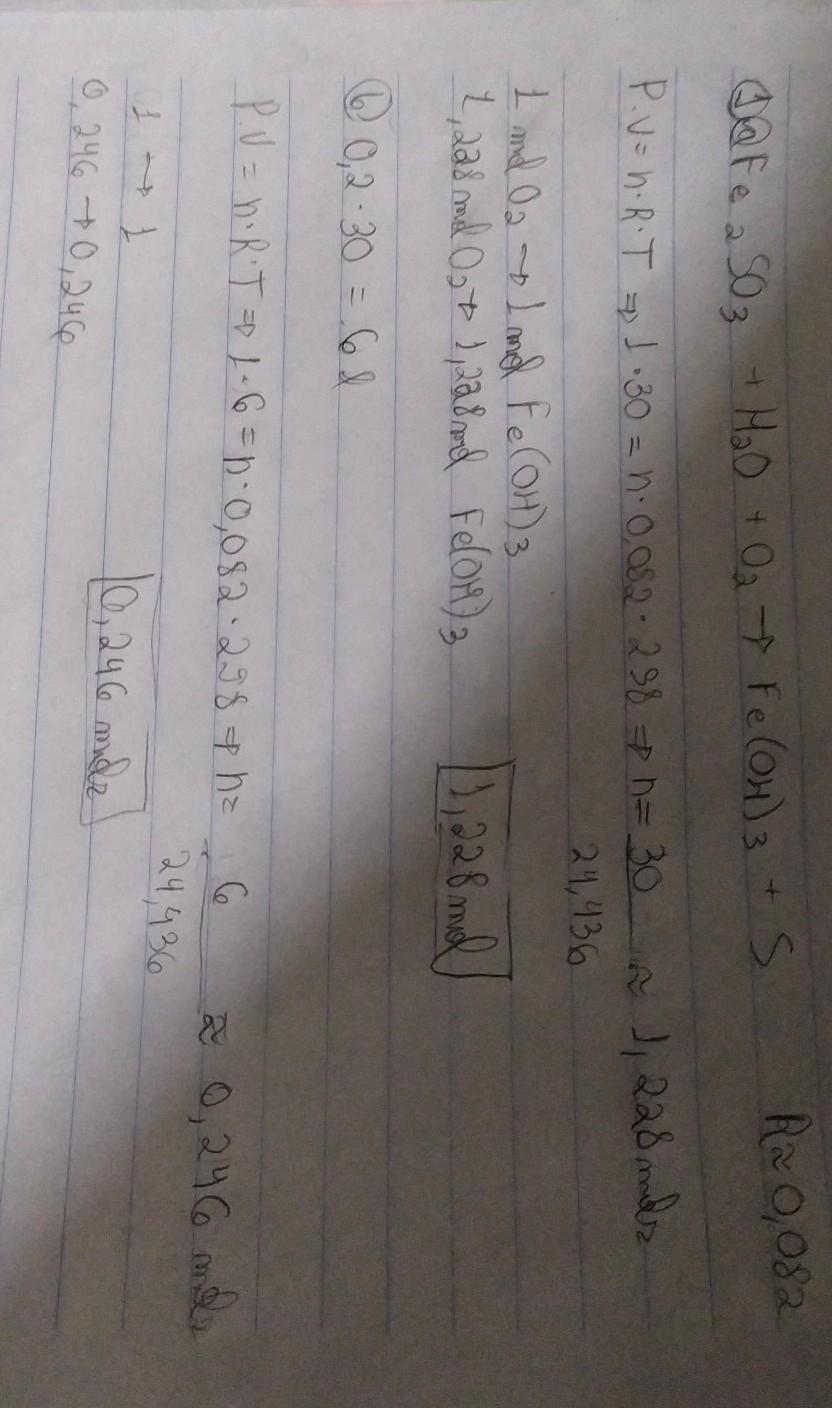 1) a) Fe2SO3 + H2O + O2 → Fe(OH)3 + S R≈0,082
P.V = n.R.T ⇒ 1.30 = n.0,082.298 ⇒ n = 30 ≈ 1,228 mols
24,436
1 mol O2 → 1 mol Fe(OH)3
1,228 mol O2 → 1,228 mol Fe(OH)3 1,228 mol
b) 0,2.30 = 6 l
P.V = n.R.T ⇒ 1.6 = n.0,082.298 ⇒ n = 6 ≈ 0,246 mols
24,436
1 → 1
0,246 → 0,246 0,246 mols